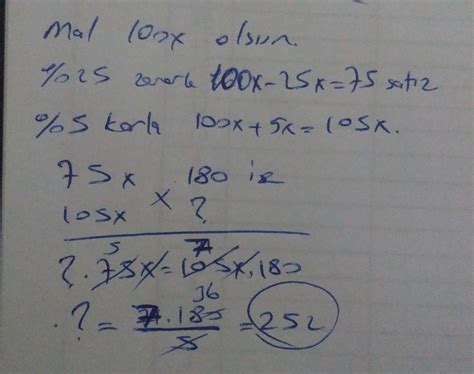 Mal 100x olsun.
%25 zararla 100x-25x=75 satış
%5 karla 100x+5x=105x.
75x 180 ise
105x × ?
5 7
?.75x=105x.180
36
?= 7.180 / 5 = 252